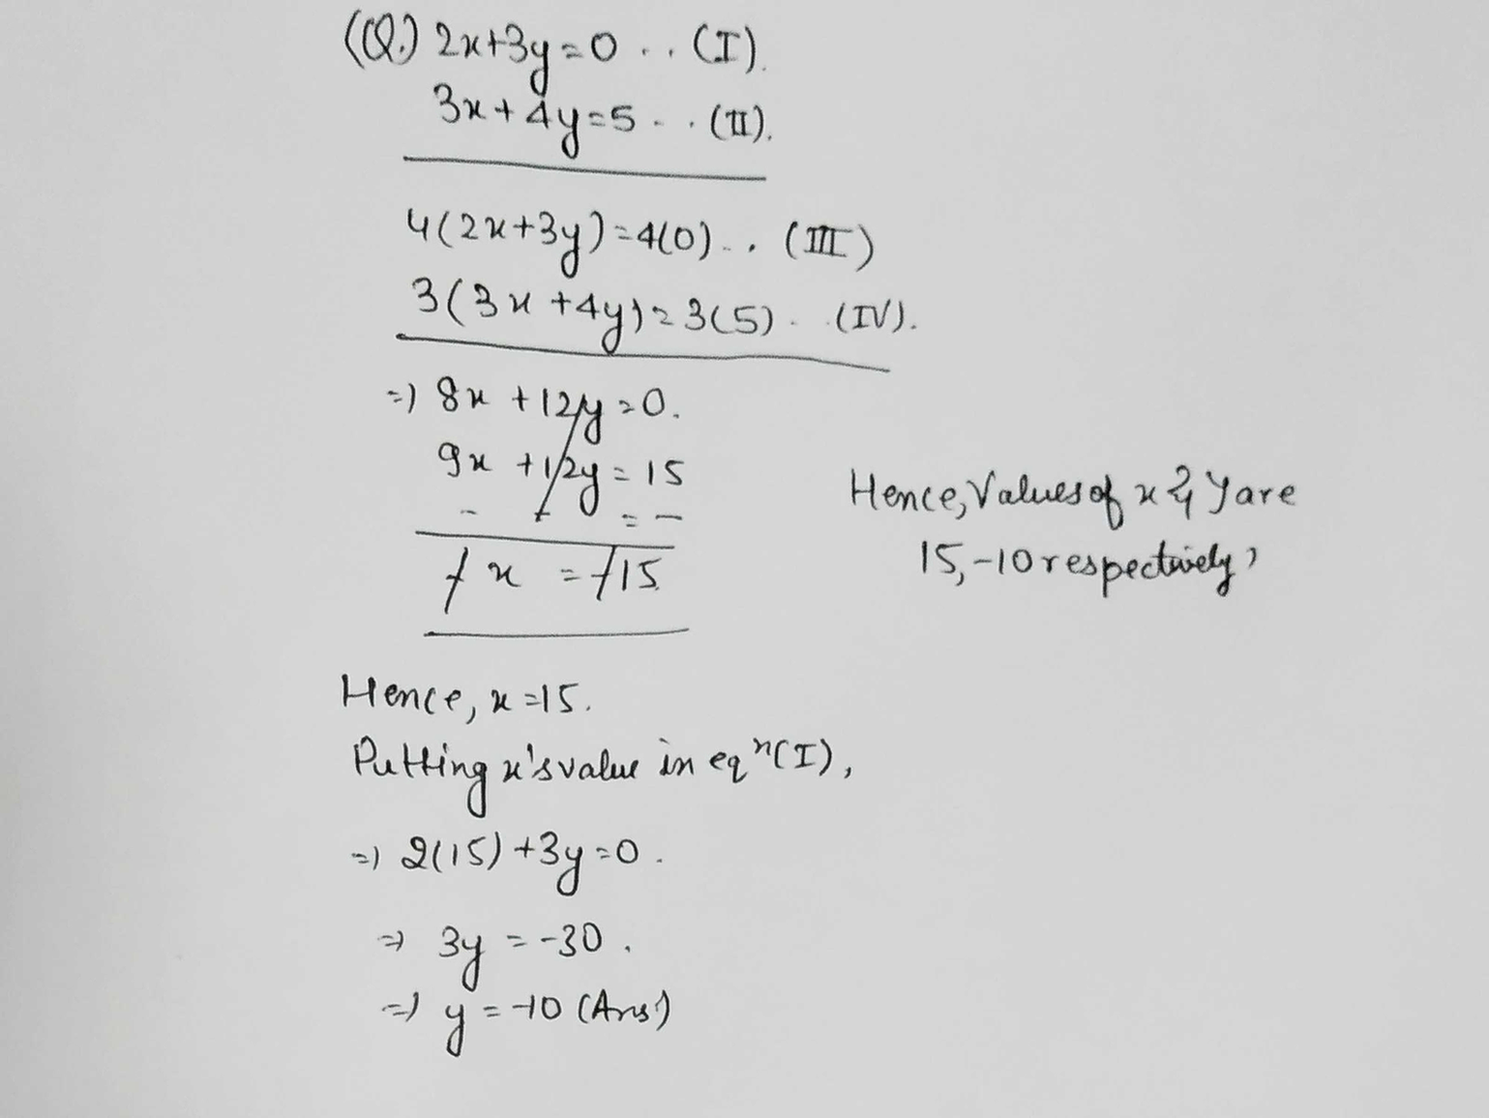 (Q.) 2x+3y=0 .. (I).
3x+4y=5 .. (II).
4(2x+3y)=4(0) .. (III)
3(3x+4y)=3(5) .. (IV).
=) 8x +12y=0.
9x +12y=15
- - = -
-x = -15
Hence, x=15.
Putting x's value in eqⁿ(I),
=) 2(15)+3y=0.
=) 3y = -30.
=) y = -10 (Ans)
Hence, Values of x & y are
15, -10 respectively,